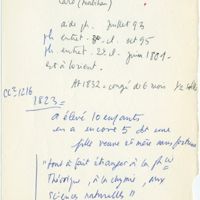 aide ph. juillet 93
ph. entret. 3e cl. oct 95
ph. entret. 2e cl. juin 1801
est à Lorient.
At 1832 - congé de 6 mois 1/2 solde
CC2 1216
1823 =
a élevé 10 enfants
en a encore 5 dt une
fille veuve et mère sans fortune
"tout à fait étranger à la ph
théorique, à la chymie, aux
sciences naturelles"